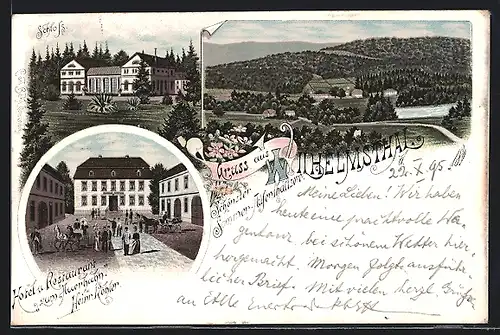 Schloss.
Gruss aus WILHELMSTHAL
Schönster
Sommer-Aufenthaltsort
Hotel u. Restaurant
zum Auerhahn.
v. Heinr. Köhler.
22. X. 95.
Meine Lieben! Wir haben
heute eine prachtvolle Wa-
gentour bei schönem Wetter hier-
hergemacht. Morgen folgt ausführ-
licher Brief. Mit vielen herzl. Grüßen
an Alle